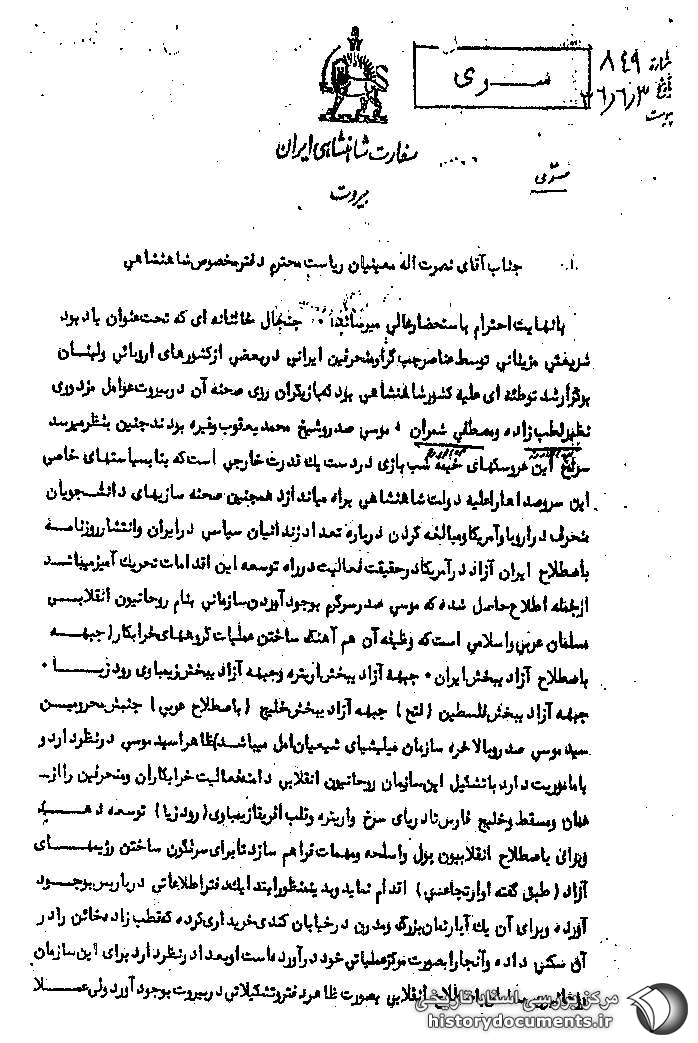 شماره ۸۴۹
تاریخ ۳۶/۶/۳
پیوست
سری
سفارت شاهنشاهی ایران
بیروت
مستقیم
جناب آقای نصرت اله معینیان ریاست محترم دفتر مخصوص شاهنشاهی
بانهایت احترام باستحضار عالی میرساند: جنجال خائنانه ای که تحت عنوان یاد بود
شریعتی مزینانی توسط عناصر چپ گرا و منحرفین ایرانی در بعضی از کشورهای اروپائی و لبنان
برگزار شد توطئه ای علیه کشور شاهنشاهی بود که بازیگران روی صحنه آن در بیروت عوامل مزدوری
نظیر قطب زاده و مصطفی شمران ، موسی صدر و شیخ محمد یعقوب و غیره بودند چنین بنظر میرسد
سرنخ این عروسکهای خیمه شب بازی در دست یک قدرت خارجی است که بنا بسیاستهای خاصی
این سر و صداها را علیه دولت شاهنشاهی براه میاندازد همچنین صحنه سازیهای دانشجویان
منحرف در اروپا و آمریکا و مبالغه کردن درباره تعداد زندانیان سیاسی در ایران و انتشار روزنامه
باصطلاح ایران آزاد در آمریکا در حقیقت فعالیت در راه توسعه این اقدامات تحریک آمیز میباشد
از جمله اطلاع حاصل شده که موسی صدر سرگرم بوجود آوردن سازمانی بنام روحانیون انقلابی
مسلمان عربی و اسلامی است که وظیفه آن هم آهنگ ساختن عملیات گروههای خرابکار (جبهه
باصطلاح آزاد یبخش ایران ، جبهه آزاد یبخش اریتره و جبهه آزاد یبخش زیمباوی رودزیا ،
جبهه آزاد یبخش فلسطین (فتح) جبهه آزاد یبخش خلیج (باصطلاح عربی) جنبش محرومین
سید موسی صدر و بالاخره سازمان میلیشیای شیعیان امل میباشد) ظاهرا سید موسی در نظر دارد و
یا ماموریت دارد با تشکیل این سازمان روحانیون انقلابی دامنه فعالیت خرابکاران و منحرفین را از
عمان و مسقط و خلیج فارس تا دریای سرخ و اریتره و قلب افریقا زیمباوی (رودزیا) توسعه دهد
و برای باصطلاح انقلابیون پول و اسلحه و مهمات فراهم سازد تا برای سرنگون ساختن رژیمهای
آزاد (طبق گفته او ارتجاعی) اقدام نماید و بدینمنظور ابتدا یک دفتر اطلاعاتی در پاریس بوجود
آورده و برای آن یک آپارتمان بزرگ و مدرن در خیابان کندی خریداری کرده که قطب زاده خائن را در
آن سکنی داده و آنجا را بصورت مرکز عملیاتی خود در آورده است او بعدا در نظر دارد برای این سازمان
انقلابی بصورت ظاهر دفتر و تشکیلاتی در بیروت بوجود آورد ولی عملا
مرکز بررسی اسناد تاریخی
historydocuments.ir